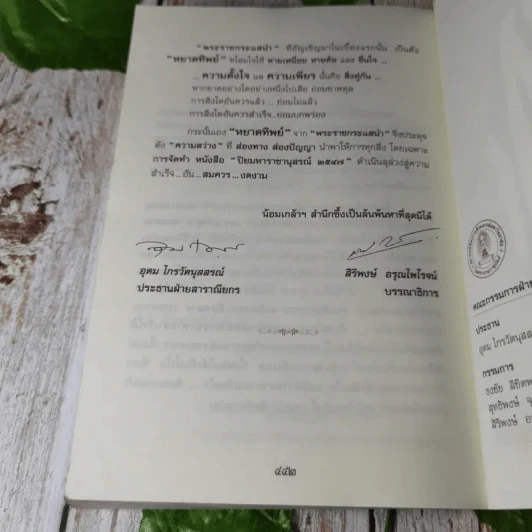 "พระราชกระแสนำ" ที่อัญเชิญมาในเบื้องแรกนั้น เป็นดั่ง
"หยาดทิพย์" ชโลมใจให้ หายเหนื่อย หายท้อ และ ชื่นใจ ...
.. ความตั้งใจ และ ความเพียร นั้นคือ สิ่งคู่กัน ...
หากขาดอย่างใดอย่างหนึ่งไปเสีย ย่อมขาดดุล
การสิ่งใดอันควรแล้ว ... ย่อมไม่แล้ว
การสิ่งใดอันควรสำเร็จ...ย่อมบกพร่อง
กระนั้นเอง "หยาดทิพย์" จาก "พระราชกระแสนำ" จึงประดุจ
ดัง "ความสว่าง" ที่ ส่องทาง ส่องปัญญา นำพาให้การทุกสิ่ง โดยเฉพาะ
การจัดทำ หนังสือ "ปิยมหาราชานุสรณ์ ๒๕๔๗" ดำเนินลุล่วงสู่ความ
สำเร็จ...อัน...สมควร...งดงาม
น้อมเกล้าฯ สำนึกซึ้งเป็นล้นพ้นหาที่สุดมิได้
อุดม ไกรวัตนุสสรณ์ สิริพงษ์ อรุณไพโรจน์
ประธานฝ่ายสาราณียกร บรรณาธิการ
๔๔๒
คณะกรรมการฝ่าย
ประธาน
อุดม ไกรวัตนุส
กรรมการ
ธงชัย
สุทธิพงษ์
สิริพงษ์ อ